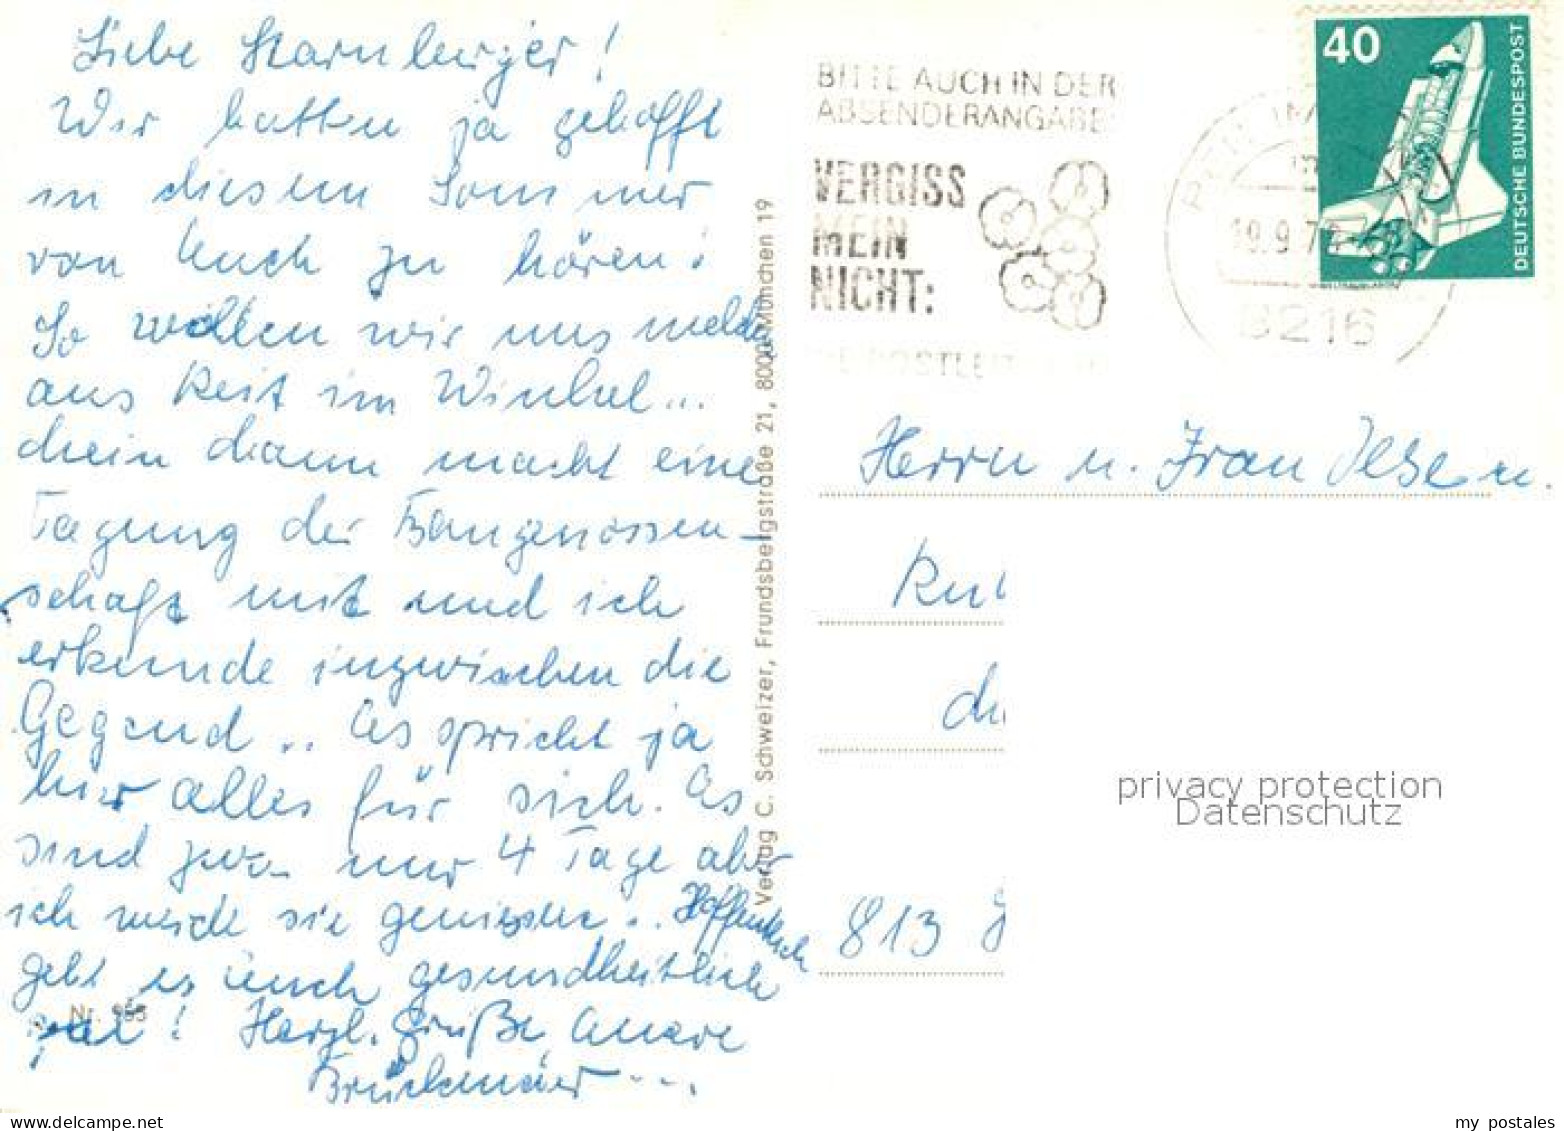 Liebe Starnberger!
Wir hatten ja gehofft
in diesem Sommer
von Euch zu hören!
So wollen wir uns melden
aus Reit im Winkel...
dein Mann macht eine
Tagung der Baugenossen-
schaft mit und ich
erkunde inzwischen die
Gegend .. Es spricht ja
hier alles für sich. Es
sind zwar nur 4 Tage aber
ich werde sie geniessen .. Hoffentlich
geht es Euch gesundheitlich
gut! Herzl. Grüße Euere
Brückmaier ...
Nr. 955
Verlag C. Schweizer, Frundsbergstraße 21, 8000 München 19
BITTE AUCH IN DER
ABSENDERANGABE:
VERGISS
MEIN
NICHT:
DIE POSTLEITZAHL
19.9.7
8216
40
DEUTSCHE BUNDESPOST
Herrn u. Frau Ilse u.
813
privacy protection
Datenschutz
my postales